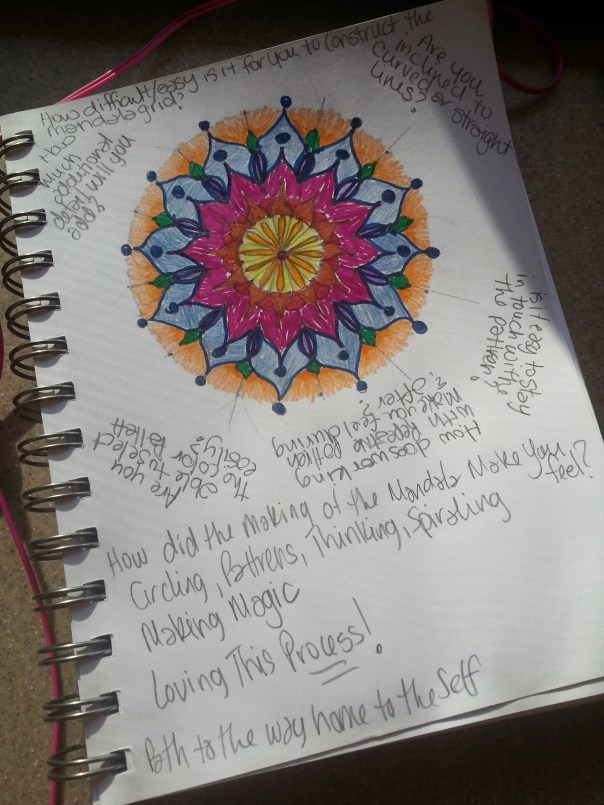 How difficult/easy is it for you to construct the
mandala grid?
Are you
inclined to
curved or straight
lines?
How
much
additional
detail will you
add?
Is it easy to stay
in touch with the
the pattern?
How does working
with repetitive pattern
make you feel during
& after?
Are you
able to select
the color pallett
easily?
How did the making of the Mandala Make You
feel?
Circling, Pattrens, Thinking, Spiraling
Making Magic
Loving This Process!
Path to the way home to the Self